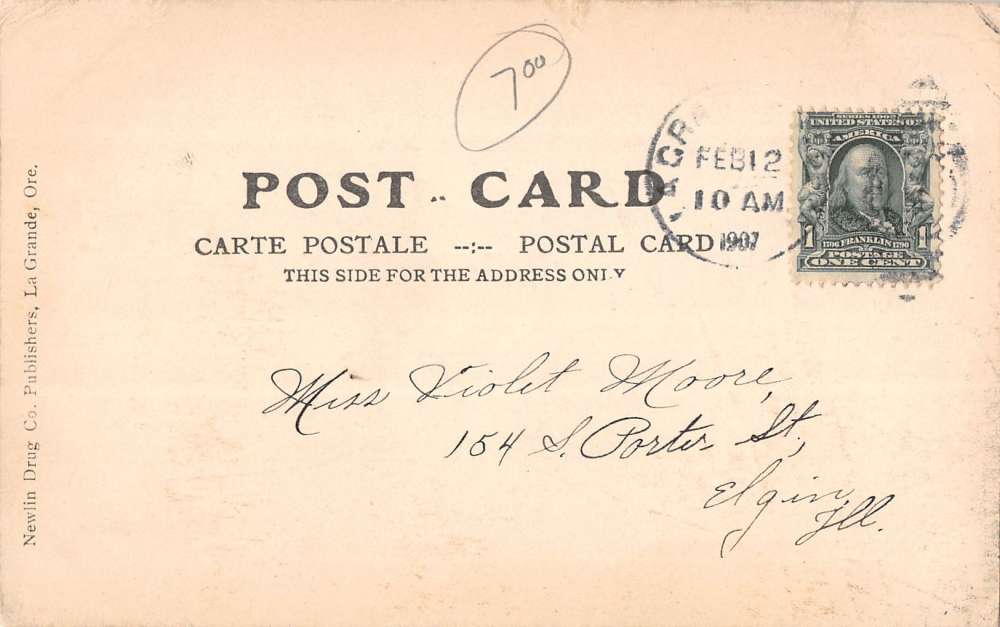 7.00
POST .. CARD
CARTE POSTALE --:-- POSTAL CARD
THIS SIDE FOR THE ADDRESS ONLY
FEB 12
10 AM
1907
SERIES 1902
UNITED STATES OF
AMERICA
1
1706 FRANKLIN 1790
POSTAGE
ONE CENT
Miss Violet Moore,
154 S. Porter St,
Elgin
Ill.
Newlin Drug Co. Publishers, La Grande, Ore.